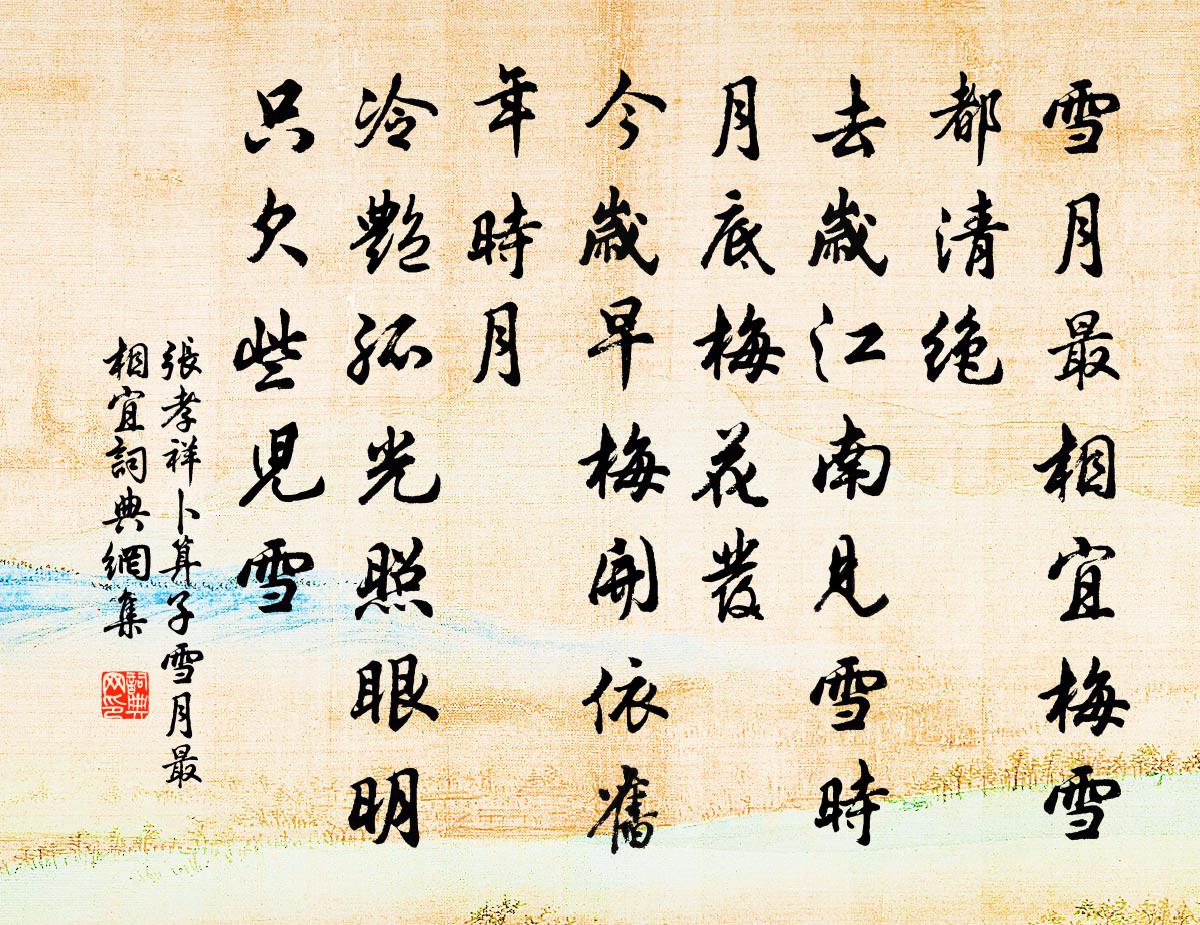 雪月最相宜梅雪
都清绝
去歲江南見雪時
月底梅花發
今歲早梅開依舊
年時月
冷艷孤光照眼明
只欠些兒雪
張孝祥卜算子雪月最
相宜詞典網集
詞典网印